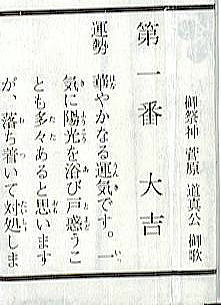 御祭神 菅原 道真公 御歌
第一番 大吉
運勢 華やかなる運気です。一
気に陽光を浴び戸惑うこ
とも多々あると思います
が、落ち着いて対処しま